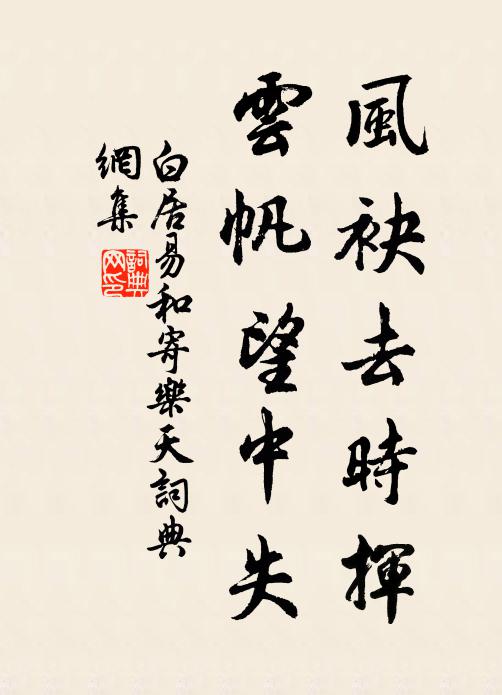 風袂去時揮
雲帆望中失
白居易和寄樂天詞典
網集
詞典
网印